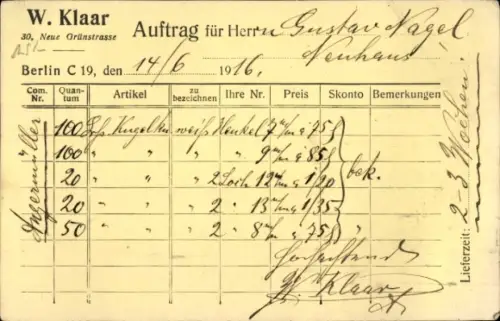 W. Klaar
30, Neue Grünstrasse
Auftrag für Herrn Gustav Nagel
Neuhaus
Berlin C 19, den 14/6 1916.
Com. Nr. Quantum Artikel zu bezeichnen Ihre Nr. Preis Skonto Bemerkungen
100 weiss Henkel 7 75
100 " " " 9 85
20 " " 2 12 1 20
20 " " 2 13 1/35
50 " " 2 8 75 "
bek.
Angermüller
Hochachtend
W. Klaar
Lieferzeit: 2-3 Wochen.